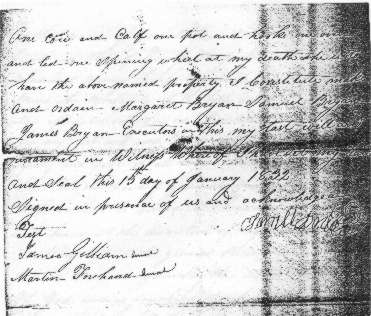 One cow and Calf one pot and hooks one
and bed one Spinning wheel at my death she
have the above named property I Constitute make
And ordain Margaret Bryan Samuel
James Bryan Executors in this my last will
in Witness whereof I
and Seal this 15th day of January 1832
Signed in presence of us and acknowledge
Test
James Gilleam Jurat
Martin Forehand Jurat